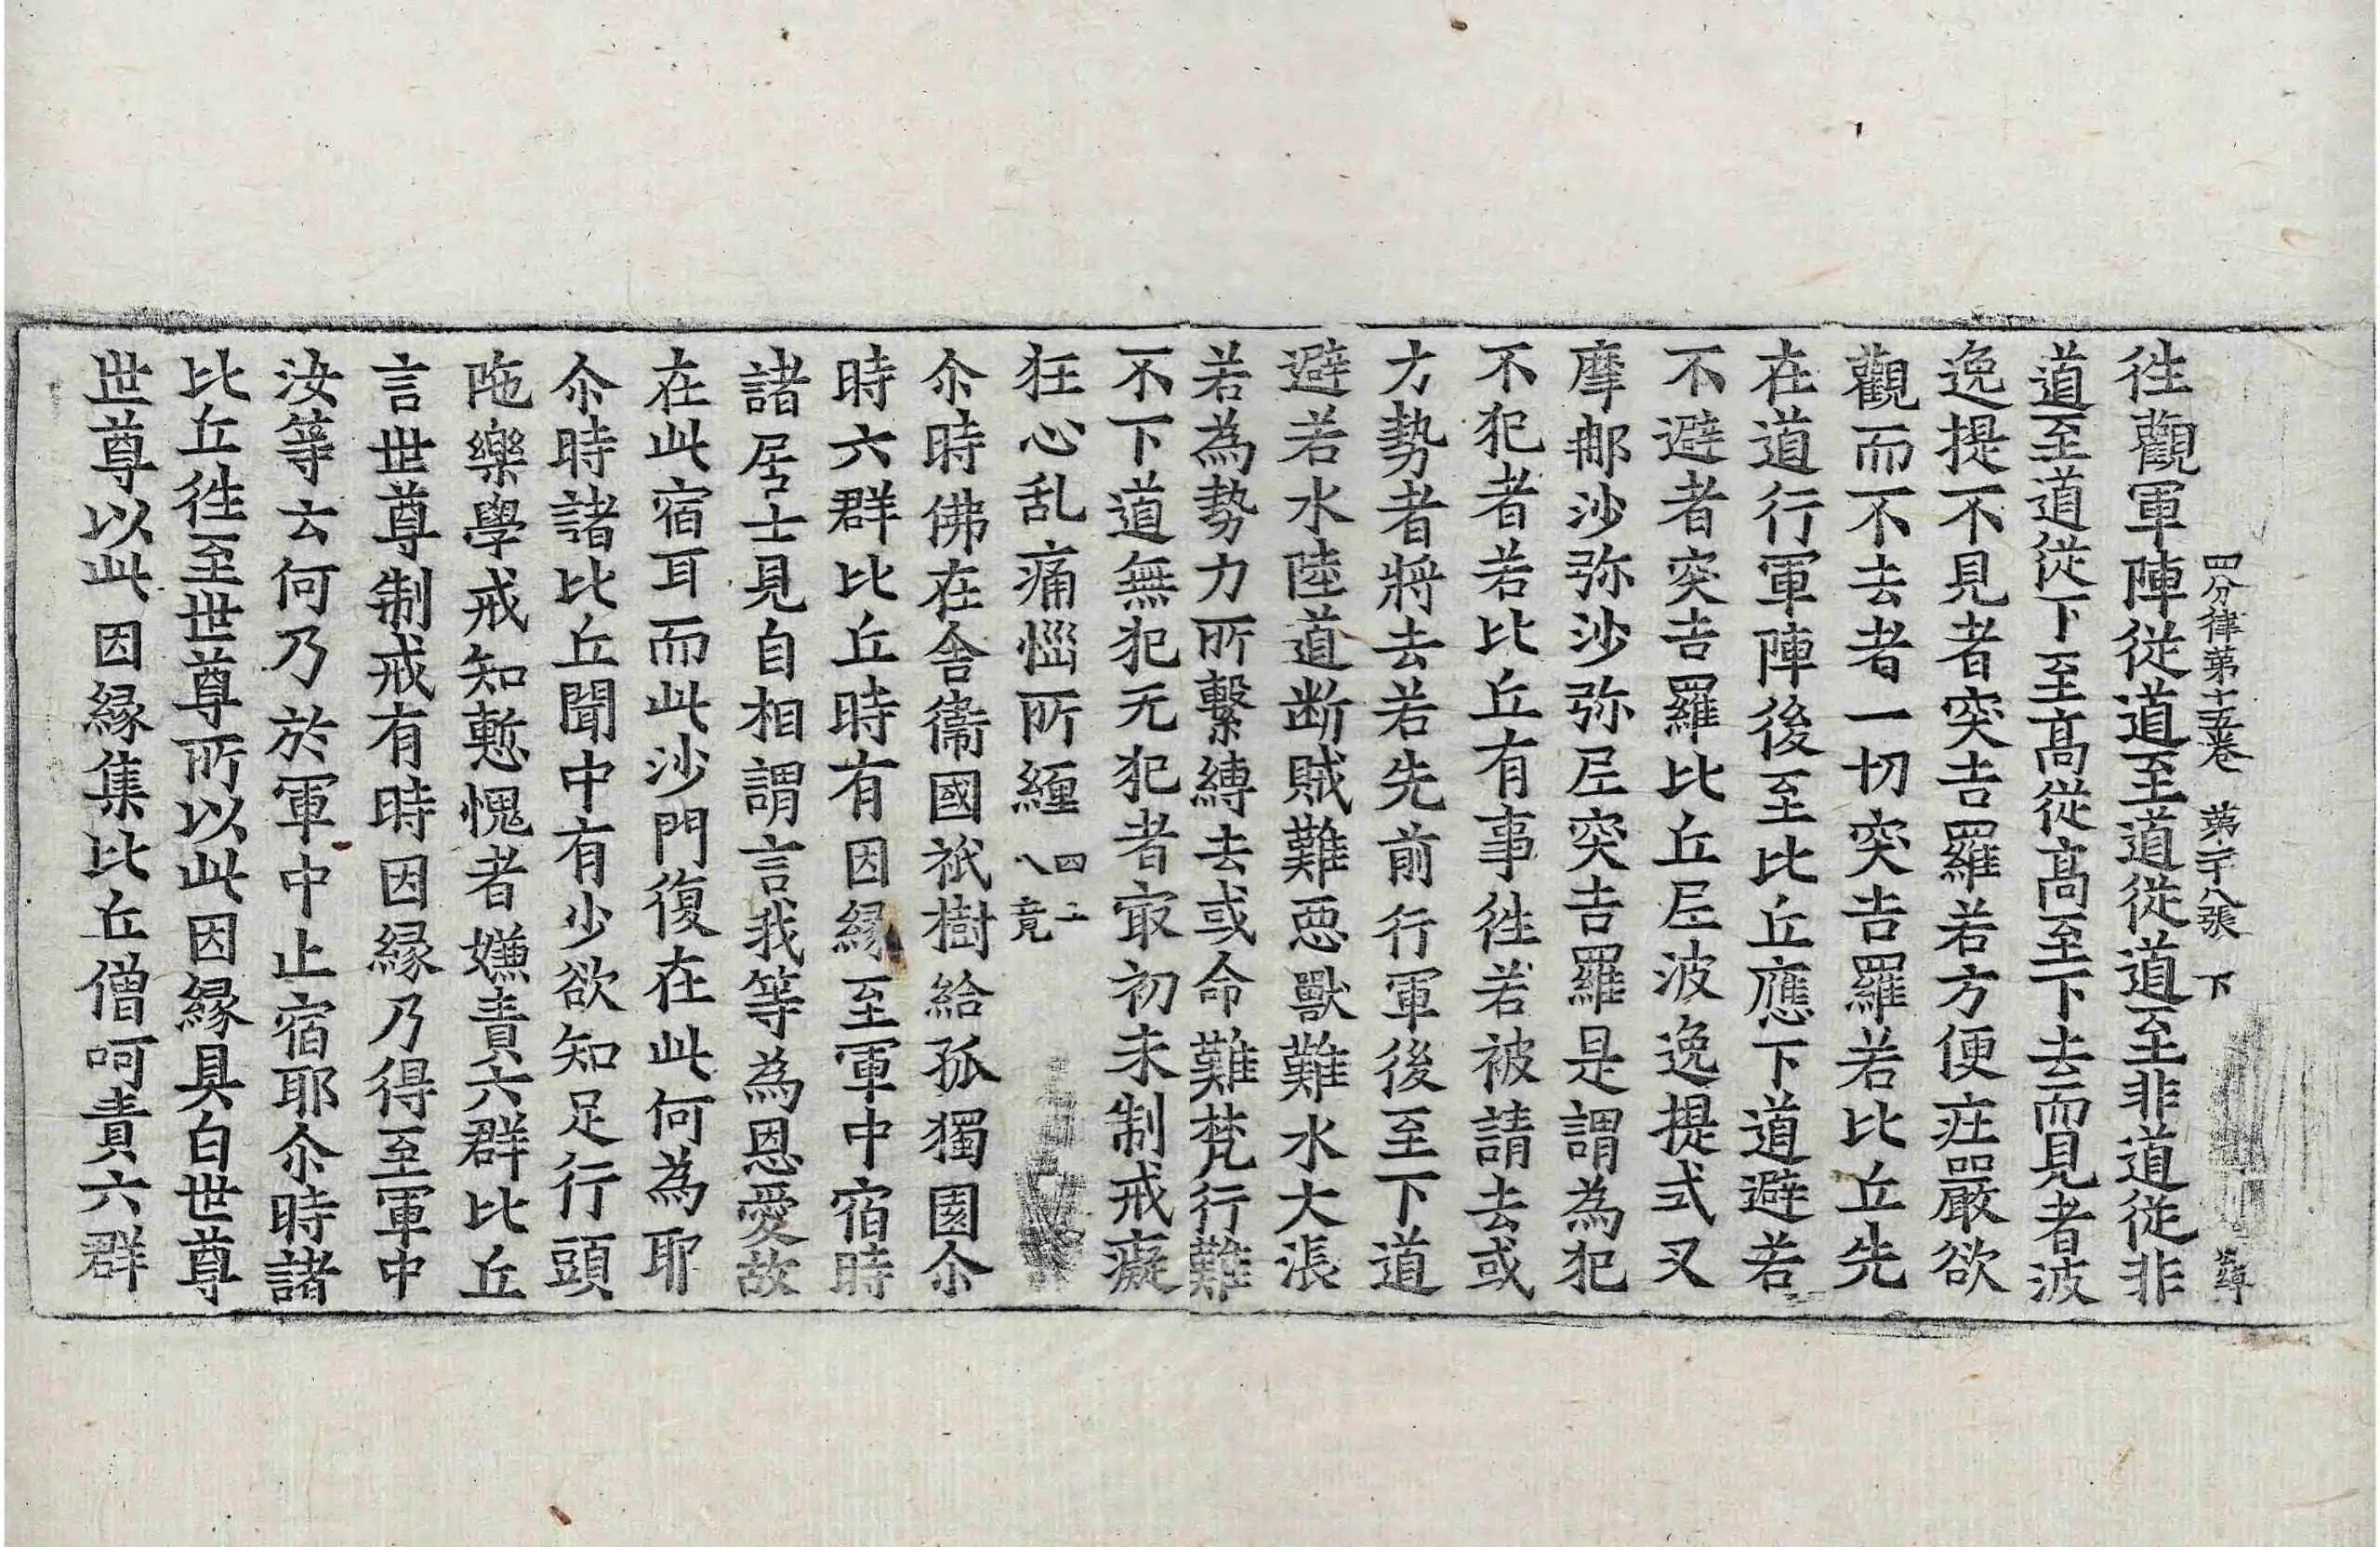 四分律第十五卷 第二十八張 下
徃觀軍陣從道至道從道至非道從非
道至道從下至髙從髙至下去而見者波
逸提不見者突吉羅若方便疘嚴欲
觀而不去者一切突吉羅若比丘先
在道行軍陣後至比丘應下道避若
不避者突吉羅比丘尼波逸提式叉
摩郍沙弥沙弥尼突吉羅是謂為犯
不犯者若比丘有事徃若被請去或
力勢者將去若先前行軍後至下道
避若水陸道断賊難惡獸難水大漲
若為勢力所繫縛去或命難梵行難
不下道無犯无犯者㝡初未制戒癡
狂心乱痛惱所纏 四十八竟
尒時佛在舍衞國祇樹給孤獨園尒
時六群比丘時有因縁至軍中宿時
諸居士見自相謂言我等為恩愛故
在此宿耳而此沙門復在此何為耶
尒時諸比丘聞中有少欲知足行頭
陁樂學戒知慙愧者嫌責六群比丘
言世尊制戒有時因縁乃得至軍中
汝等云何乃於軍中止宿耶尒時諸
比丘徃至世尊所以此因縁具白世尊
世尊以此因縁集比丘僧呵責六群